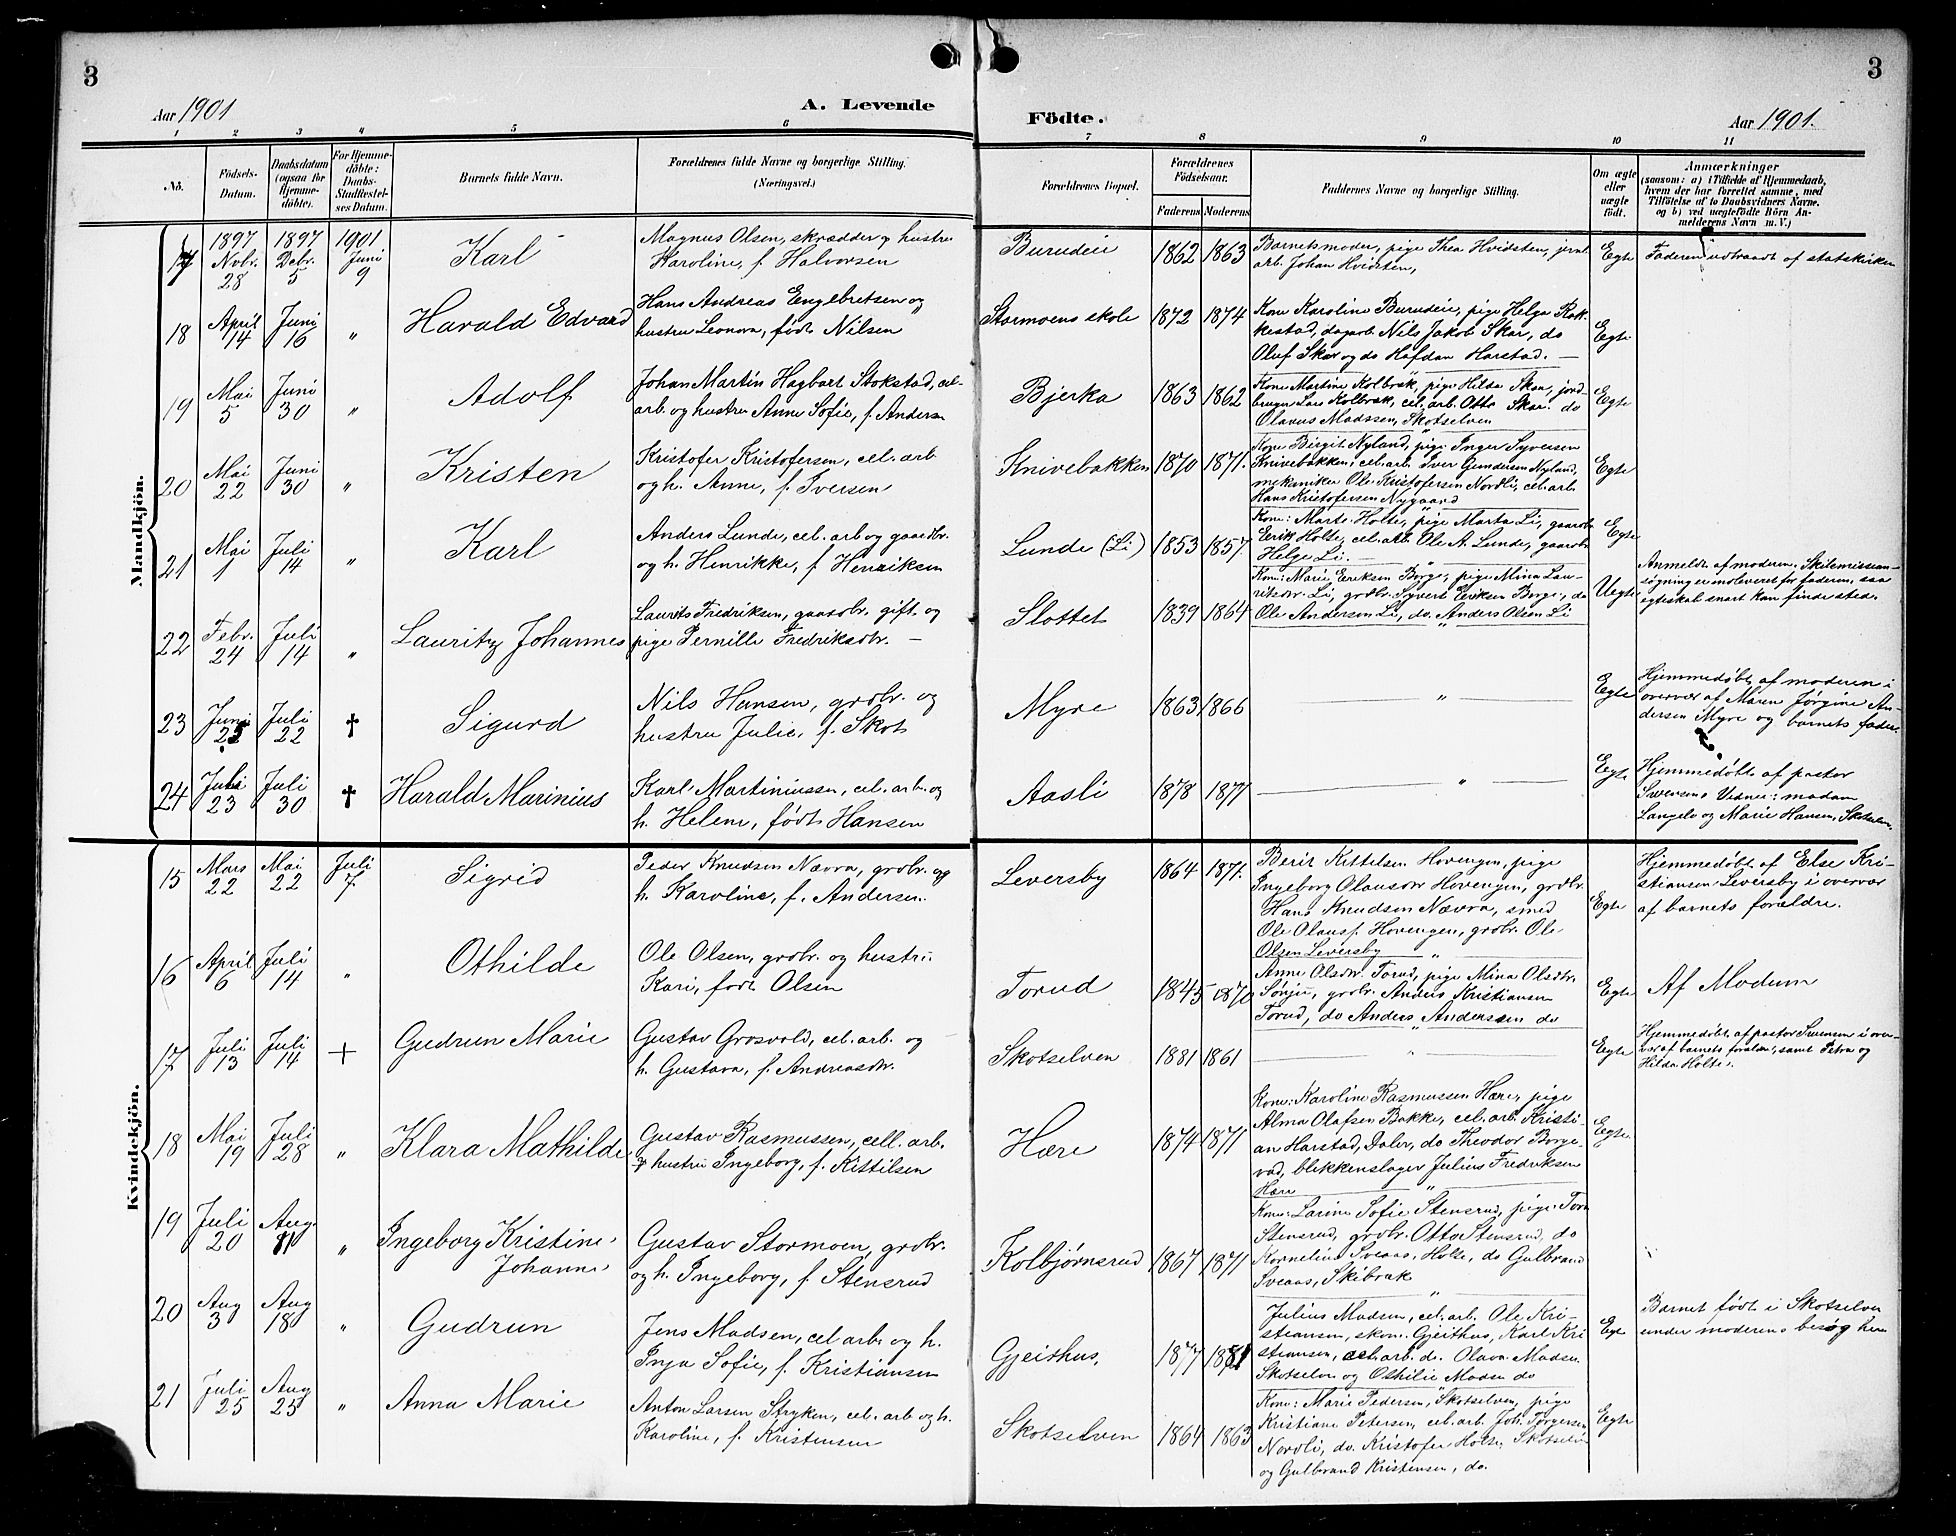 3
3
Aar 1901
A. Levende
Födte.
Aar 1901.
1 2 3 4 5 6 7 8 9 10 11
No.
Födsels-
Datum.
Daabsdatum
(ogsaa for
Hjemme-
döbte).
For Hjemme-
döbte:
Daabs-
Stadfæstel-
ses Datum.
Barnets fulde Navn.
Forældrenes fulde Navne og borgerlige Stilling.
(Næringsvei.)
Forældrenes Bopæl.
Forældrenes
Födselsaar.
Faderens Moderens
Faddernes Navne og borgerlige Stilling.
Om ægte
eller
uægte
født.
Anmærkninger
(saasom: a) i Tilfælde af Hjemmedaab,
hvem der har forrettet samme, med
Tilföielse af to Daabsvidners Navne.
og b) ved uægtefödte Börn An-
melderens Navn m. V.)
Mandkjön.
17
1897
Nobr.
28
1897
Debr.
5
1901
Juni
9
Karl
Magnus Olsen, skrædder og hustru
Karoline, f. Halvorsen
Burudeie
1862 1863
Barnets moder, pige Thea Hvidsten, jernb.
arb. Johan Hvidsten,
Egte
Faderen udtraadt af statskirken
18
April
14
Juni
16
"
Harald Edvard
Hans Andreas Engebretsen og
hustru Leonora, født Nilsen
Stormoens skole
1872 1874
Kone Karoline Burudeie, pige Helga Rak-
kestad, dagarb. Nils Jakob Skar, do
Oluf Skar og do Hafdan Harstad.
Egte
19
Mai
5
Juni
30
"
Adolf
Johan Martin Hagbart Stokstad, cel-
arb. og hustru Anne Sofie, f. Andersen
Bjerka
1863 1862
Kone Martine Kolbræk, pige Hilda Skar, jord-
bruger Lars Kolbræk, cel. arb. Otto Skar. do
Olavus Madssen, Skotselven
Egte
20
Mai
22
Juni
30
"
Kristen
Kristofer Kristofersen, cel. arb
og h. Anne, f. Iversen
Knivebakken
1870 1871.
Kone Birgit Nyland, pige Inger Syversen
Knivebakken, cel. arb. Iver Gundersen Nyland,
mekaniker Ole Kristofersen Nordli, cel. arb.
Hans Kristofersen Nygaard
Egte
21
Mai
1
Juli
14
"
Karl
Anders Lunde, cel. arb og gaardbr.
og h. Henrikke, f. Henriksen
Lunde (Li)
1853 1857
Kone: Marte Holte, pige Marta Li, gaardb.
Eerik Holte, cel. arb. Ole A. Lunde, gaardb.
Helge Li.
Egte
22
Febr.
24
Juli
14
"
Lauritz Johannes
Laurits Fredriksen, gaardbr. gift og
pige Pernille Fredriksdtr.
Slottet
1839 1864
Kone: Marie Eeriksen Borge, pige Mina Lau-
ritzdtr. Li, grdbr. Syvert Eeriksen Borge, do
Ole Andersen Li, do. Anders Olsen Li
Uegte
Anmeldt af moderen. Skilsmissean-
søgning er indleveret for faderen, saa
egteskab snart kan finde sted.
23
Juni
25
Juli
22
†
Sigurd
Nils Hansen, grdbr. og
hustru Julie, f. Skot
Myre
1863 1866
"
Egte
Hjemmedøbt af moderen i
overvær af Maren Jørgine An-
dersen Myre og barnets fader.
24
Juli
23
Juli
30
†
Harald Marinius
Karl Martiniussen, cel. arb. og
h. Helene, født Hansen
Aasli
1878 1877
"
Eegte
Hjemmedøbt af pastor
Svensen. Vidner: madam
Langeli og Marie Hansen, Skotselven.
Kvindekjön.
15
Mars
22
Mai
22
Juli
7.
Sigrid
Peder Knudsen Nævra, grdbr. og
h. Karoline, f. Andersen.
Leversby
1864 1871.
Berit Kittelsen Hovengen, pige
Ingeborg Olausdtr Hovengen, grdbr.
Hans Knudsen Nævra, smed
Ole Olausf. Hovengen, grdbr. Ole
Olsen Leversby
Egte
Hjemmedøbt af Else Kri-
stiansen Leversby i overvær
af barnets forældre.
16
April
6
Juli
14
"
Othilde
Ole Olsen, grdbr. og hustru
Kari, født Olsen
Torud
1845 1870
Anne Olsdtr. Torud, pige Mina Olsdtr.
Sønju, grdbr. Anders Kristiansen
Torud, do Anders Andersen do
Egte
Af Modum
17
Juli
13
Juli
14
+
Gudrun Marie
Gustav Grosvold, cel. arb. og
h. Gustava, f. Andreasdtr.
Skotselven
1881 1861
"
Eegte
Hjemmedøbt af pastor Svensen i over-
vær af barnets forældre, samt Petra og
Hilda Holte.
18
Mai
19
Juli
28
"
Klara Mathilde
Gustav Rasmussen, cell. arb.
og hustru Ingeborg, f. Kittilsen
Hære
1874 1871
Kone: Karoline Rasmussen Hære, pige
Alma Olafsen Bakke, cel. arb. Kristi-
an Harstad, Daler, do Theodor Borge-
rød, blikkenslager Julius Fredriksen
Hære
Eegte
19
Juli
20
Aug.
11
"
Ingeborg Kristine
Johanne
Gustav Stormoen, grdbr.
og h. Ingeborg, f. Stensrud
Kolbjørnsrud
1867 1871
Kone: Larine Sofie Stensrud, pige Tora
Stensrud, grdbr. Otto Stensrud, do
Kornelius Sveaas, Holte, do Gulbrand
Sveaas, Skibrak
20
Aug
3
Aug
18
"
Gudrun
Jens Madsen, cel. arb. og h.
Inja Sofie, f. Kristiansen
Gjeithus,
1877 1881
Julius Madsen, cel. arb. Ole Kri-
stiansen, skom. Gjeithus, Karl Kri
stiansen, cel. arb. do. Olava Madsen
Skotselven og Othilie Madsen do
Egte
Barnet født i Skotselven
under moderens besøg her
21
Juli
25
Aug
25
"
Anna Marie
Anton Larsen Stryken, cel. arb og h.
Karoline, f. Kristensen
Skotselven
1864 1863
Kone: Marie Pedersen, Skotselven, pige
Kristiane Petersen, cel. arb. Joh. Jørgensen
Nordli, do. Kristofer Holte, Skotselv
og Gulbrand Kristensen, do.
Eegte